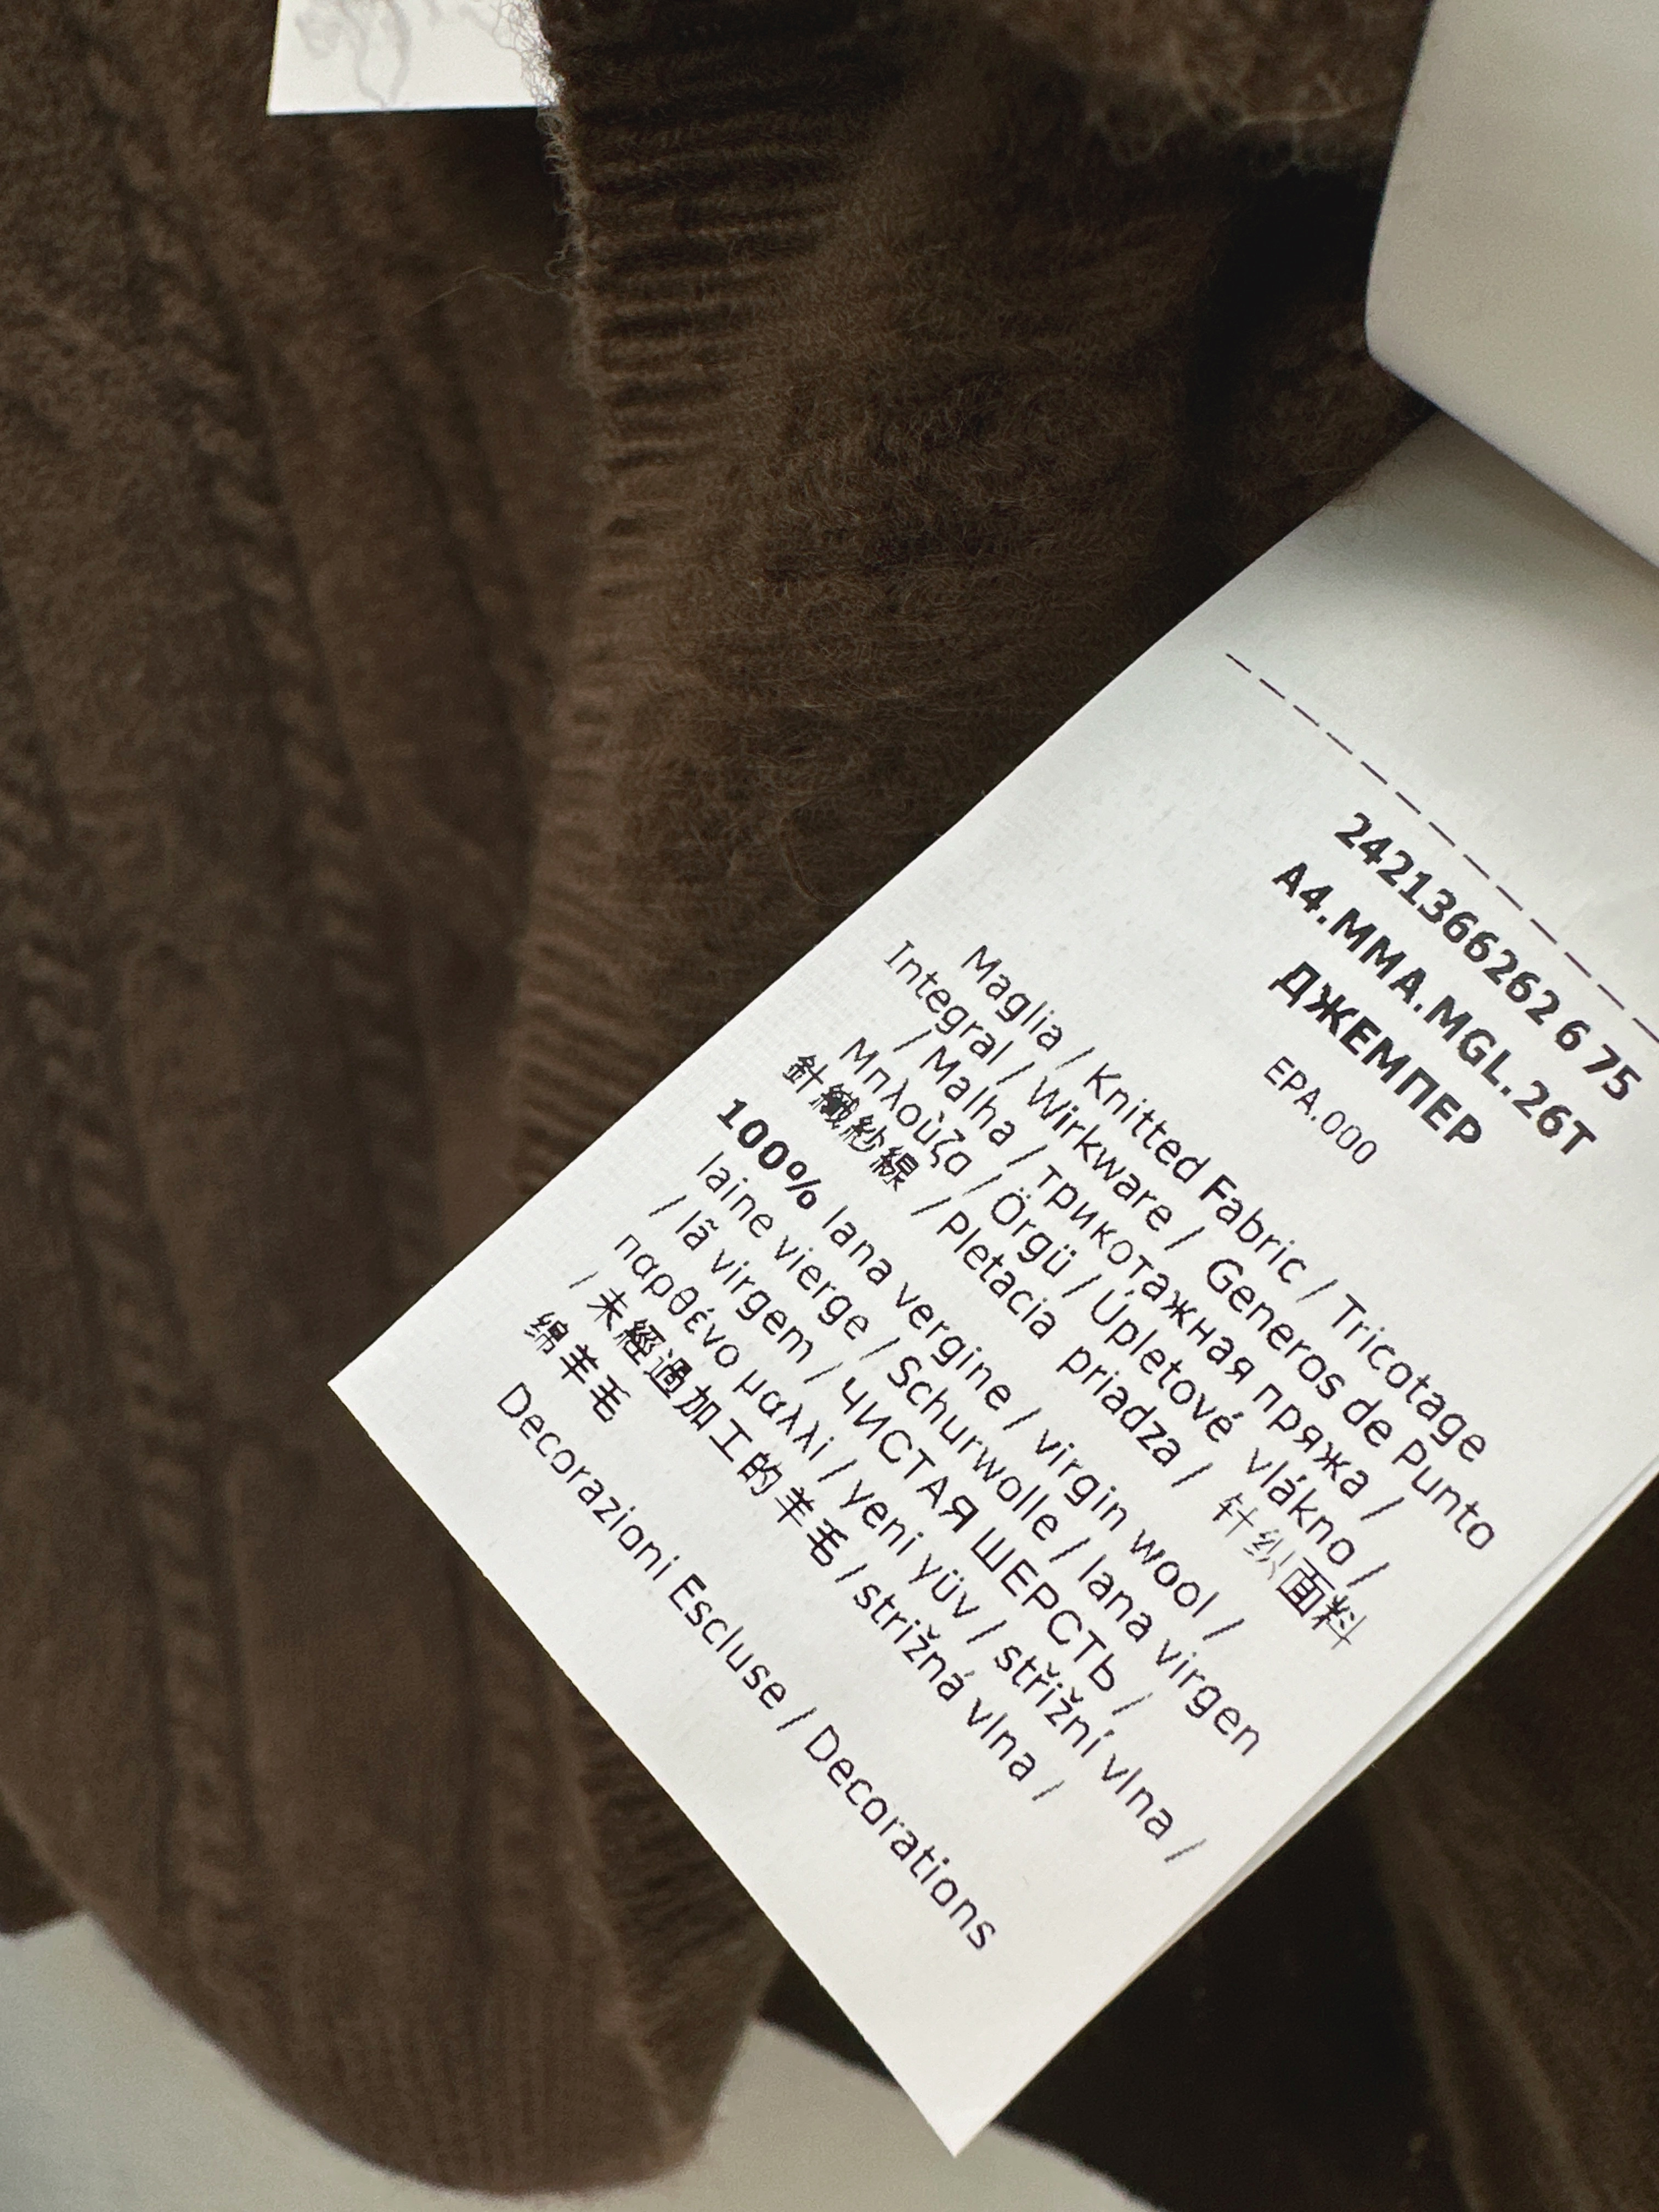 2421366262 6 75
A4.MMA.MGL.26T
ДЖЕМПЕР
EPA.000
Maglia / Knitted Fabric / Tricotage
Integral / Wirkware / Generos de Punto
/ Malha / трикотажная пряжа /
Μπλούζα / Örgü / Úpletové vlákno /
針織紗線 / Pletacia priadza / 针织面料
100% lana vergine / virgin wool /
laine vierge / Schurwolle / lana virgen
/ lã virgem / ЧИСТАЯ ШЕРСТЬ /
παρθένο μαλλι / yeni yüv / střižní vlna /
/ 未經過加工的羊毛 / strižná vlna /
绵羊毛
Decorazioni Escluse / Decorations